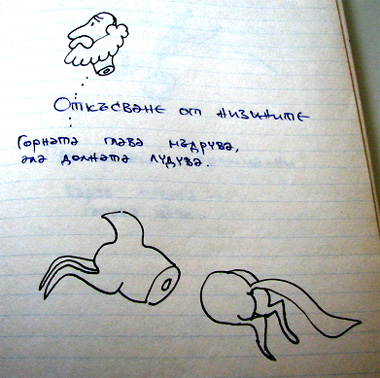 Откъсване от низините
Горната глава мъдрува,
ала долната лудува.